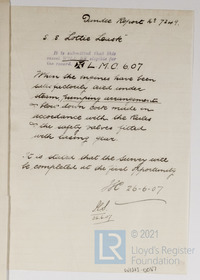 Dundee Report No 7249
S S "Lottie Leask"
It is submitted that this
vessel eligible for
the record L.M.C. 6.07
When the moines have been
satisfactorily tried under
steam pumping arrangements
blow down cock made in
accordance with the Rules
the safety valves fitted
with easing gear.
It is stated that the Survey will
be completed at the first opportunity
26-6-07
© 2021
Lloyd's Register
Foundation